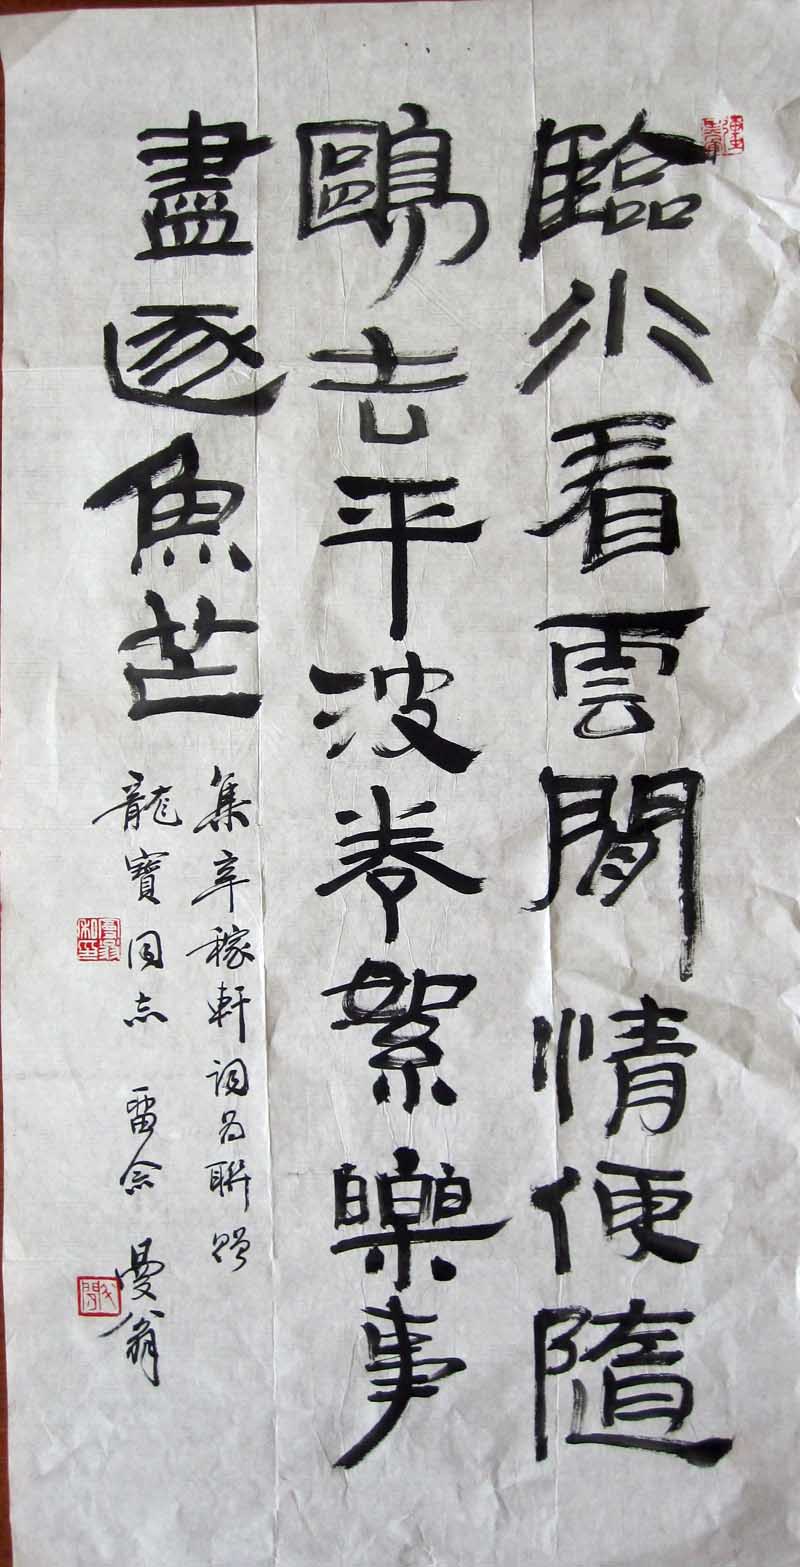 臨水看雲閒情便隨
鷗去平波卷絮樂事
盡逐魚芒
集辛稼軒詞為聯贈
龍寶同志 留念 曼翁